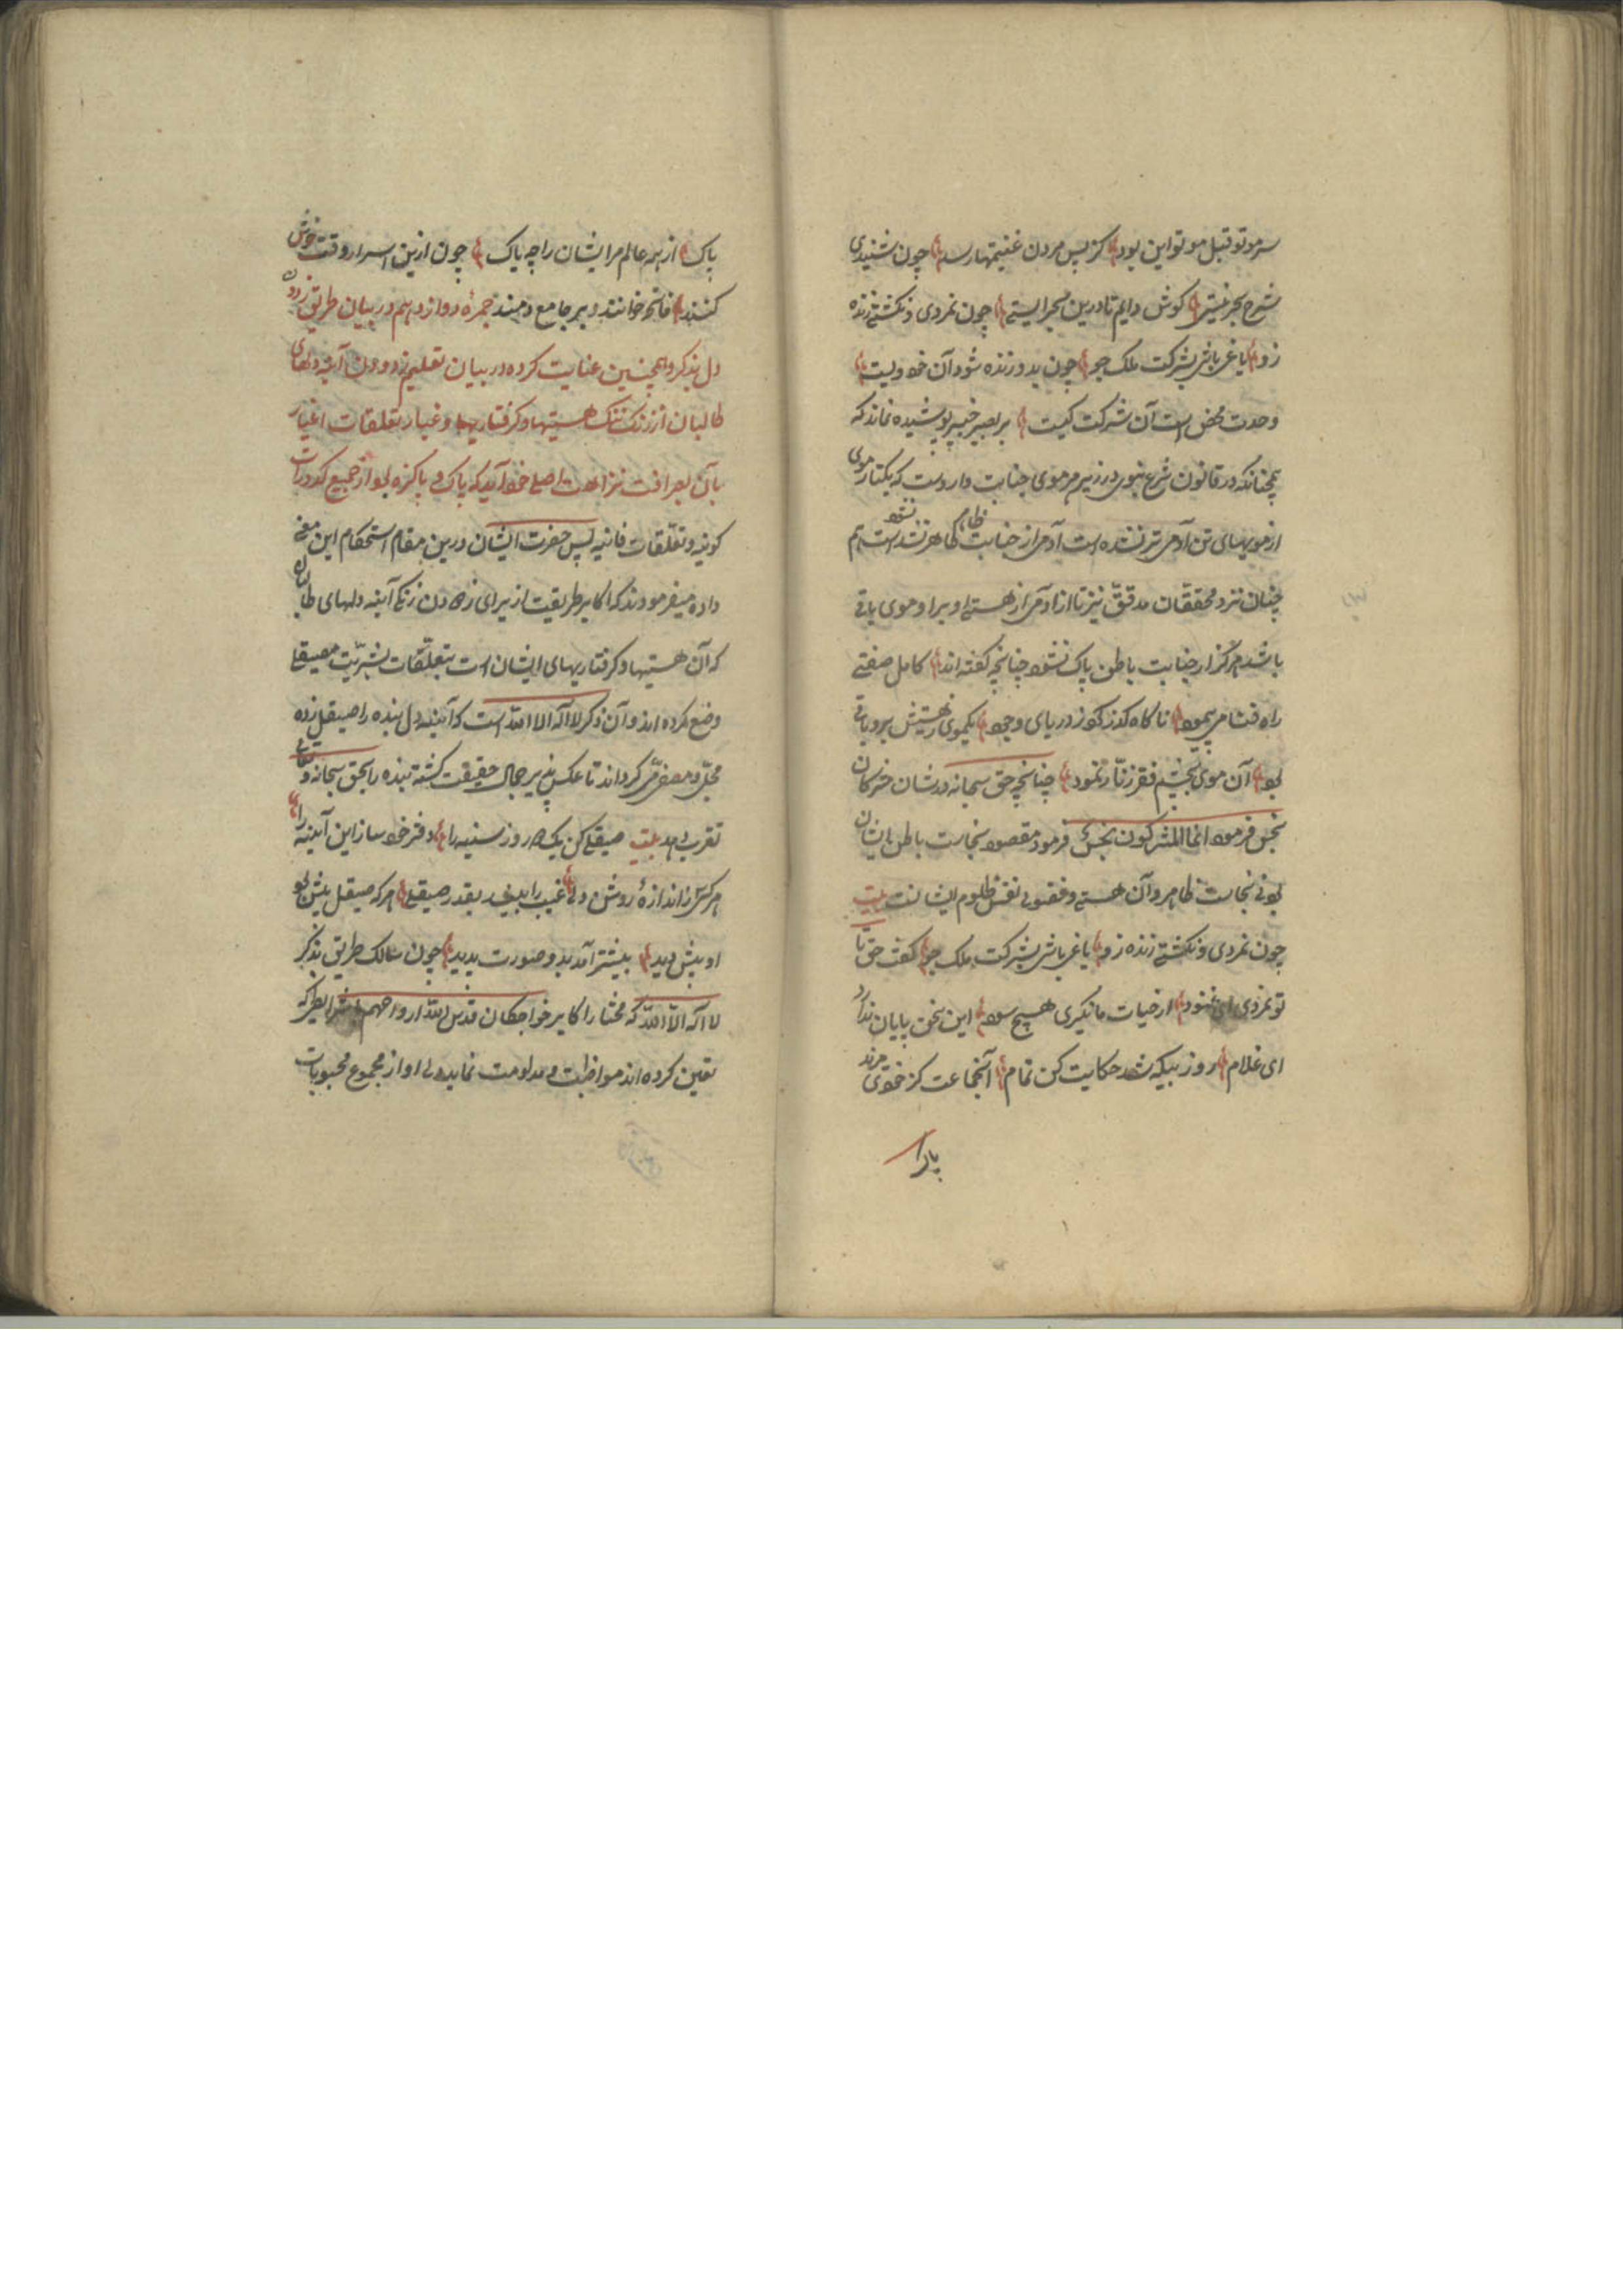 سر موتوا قبل موتوا این بود کز پس مردن غنیمتها رسد چون شنیدی
شرح بحر نیستی کوش دایم تا درین بحر ایستی چون نمردی و نکشتی زنده
زو یاغی باشی بشرکت ملک جو چون بدو زنده شود آن خود ویست
وحدت محض است آن شرکت کیست بر بصیر خبیر پوشیده نماند که
همچنانکه در قانون شرع نبوی در زیر هر موی جنابت واردست که یکتار موی
از مویهای تن آدمی تر نشده است آدمی از جنابت ظاهر نشود هم
چنان نزد محققان مدقق نیز تا از آدمی از هستی او برابر موی باقی
باشد هرگز از جنابت باطن پاک نشود چنانچه گفته اند کامل صفتی
راه فنا می پیمود ناگاه گذر کرد ز دریای وجود یکموی ز هستیش برو باقی
بود آن موی بچشم فقر زنار نمود چنانچه حق سبحانه در شان مشرکان
نجس فرموده انما المشرکون نجس فرمود مقصود نجاست باطن ایشان
بود نی نجاست ظاهر و آن هستی و فضولی نفس ظلوم ایشانست بیت
چون نمردی و نکشتی زنده زو یاغی باشی بشرکت ملک جو گفت حق تا
تو نمردی ای عنود از حیات ما نگیری هیچ سود این سخن پایان ندارد
ای غلام روز بیگه شد حکایت کن تمام آنجماعت کز خودی مردند
پاک
پاک از همه عالم مر ایشان را چه باک چون ازین اسرار وقت خوش
کنند فاتحه خوانند و بر جامع دمند جمرهٔ دوازدهم در بیان طریق زدودن
دل بذکر و همچنین عنایت کرده در بیان تعلیم زدودن آینه دلهای
طالبان از زنگ هستیها و گرفتاریها و غبار تعلقات اغیار
بآن بصرافت نزاهت اصلی خود آید که پاک و پاکزه بود از جمیع کدورات
کونیه و تعلقات فانیه پس حضرت ایشان درین مقام استحکام این معنی
داده میفرمودند که اکابر طریقت از برای زدودن زنگ آینه دلهای طالبان
که آن هستیها و گرفتاریهای ایشان است بتعلقات بشریت مصیقلی
وضع کرده اند و آن ذکر لا اله الا الله است که آینه دل بنده را صیقل زده
مجلی و مصفی گرداند تا عکس پذیر جمال حقیقت گشته بنده را بحق سبحانه و تعالی
تقرب دهد بیت صیقلی کن یک دو روز سینه را دفتر خود ساز این آینه را
هرکس ز اندازهٔ روشن دلی غیب را بیند بقدر صیقلی هرکه صیقل بیش کرد
او بیش دید بیشتر آمد برو صورت پدید چون سالک طریق بذکر
لا اله الا الله که مختار اکابر خواجگان قدس الله ارواحهم بشرایطی که
تعین کرده اند مواظبت و مداومت نماید دل او از مجموع محبوبات